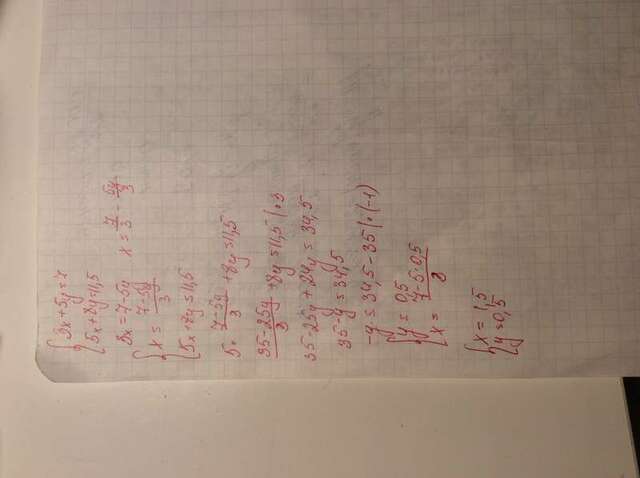 {3x+5y=7
{5x+8y=11,5
3x=7-5y x=7/3-5y/3
{x=(7-5y)/3
{5x+8y=11,5
5·(7-5y)/3+8y=11,5
(35-25y)/3+8y=11,5 |·3
35-25y+24y=34,5
35-y=34,5
-y=34,5-35 |·(-1)
{y=0,5
{x=(7-5·0,5)/3
{x=1,5
{y=0,5